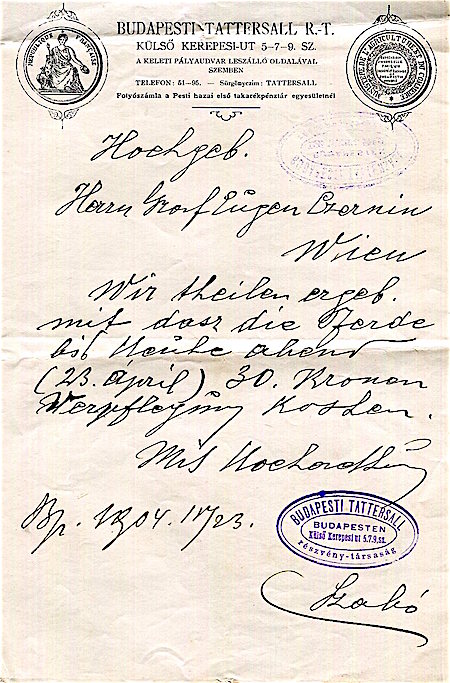 BUDAPESTI TATTERSALL R.-T.
KÜLSŐ KEREPESI-UT 5–7–9. SZ.
A KELETI PÁLYAUDVAR LESZÁLLÓ OLDALÁVAL
SZEMBEN
TELEFON: 51–95. — Sürgönyczim: TATTERSALL
Folyószámla a Pesti hazai első takarékpénztár egyesületnél
Hochgeb.
Herrn Graf Eugen Czernin
Wien
Wir theilen ergeb.
mit dasz die Pferde
bis Heute abend
(23. April) 30. Kronen
Verpflegung Kosten.
Mit Hochachtung
Bp. 1904. IV/23.
BUDAPESTI TATTERSALL
BUDAPESTEN
Külső Kerepesi ut 5.7.9.sz.
részvény-társaság
Szabó